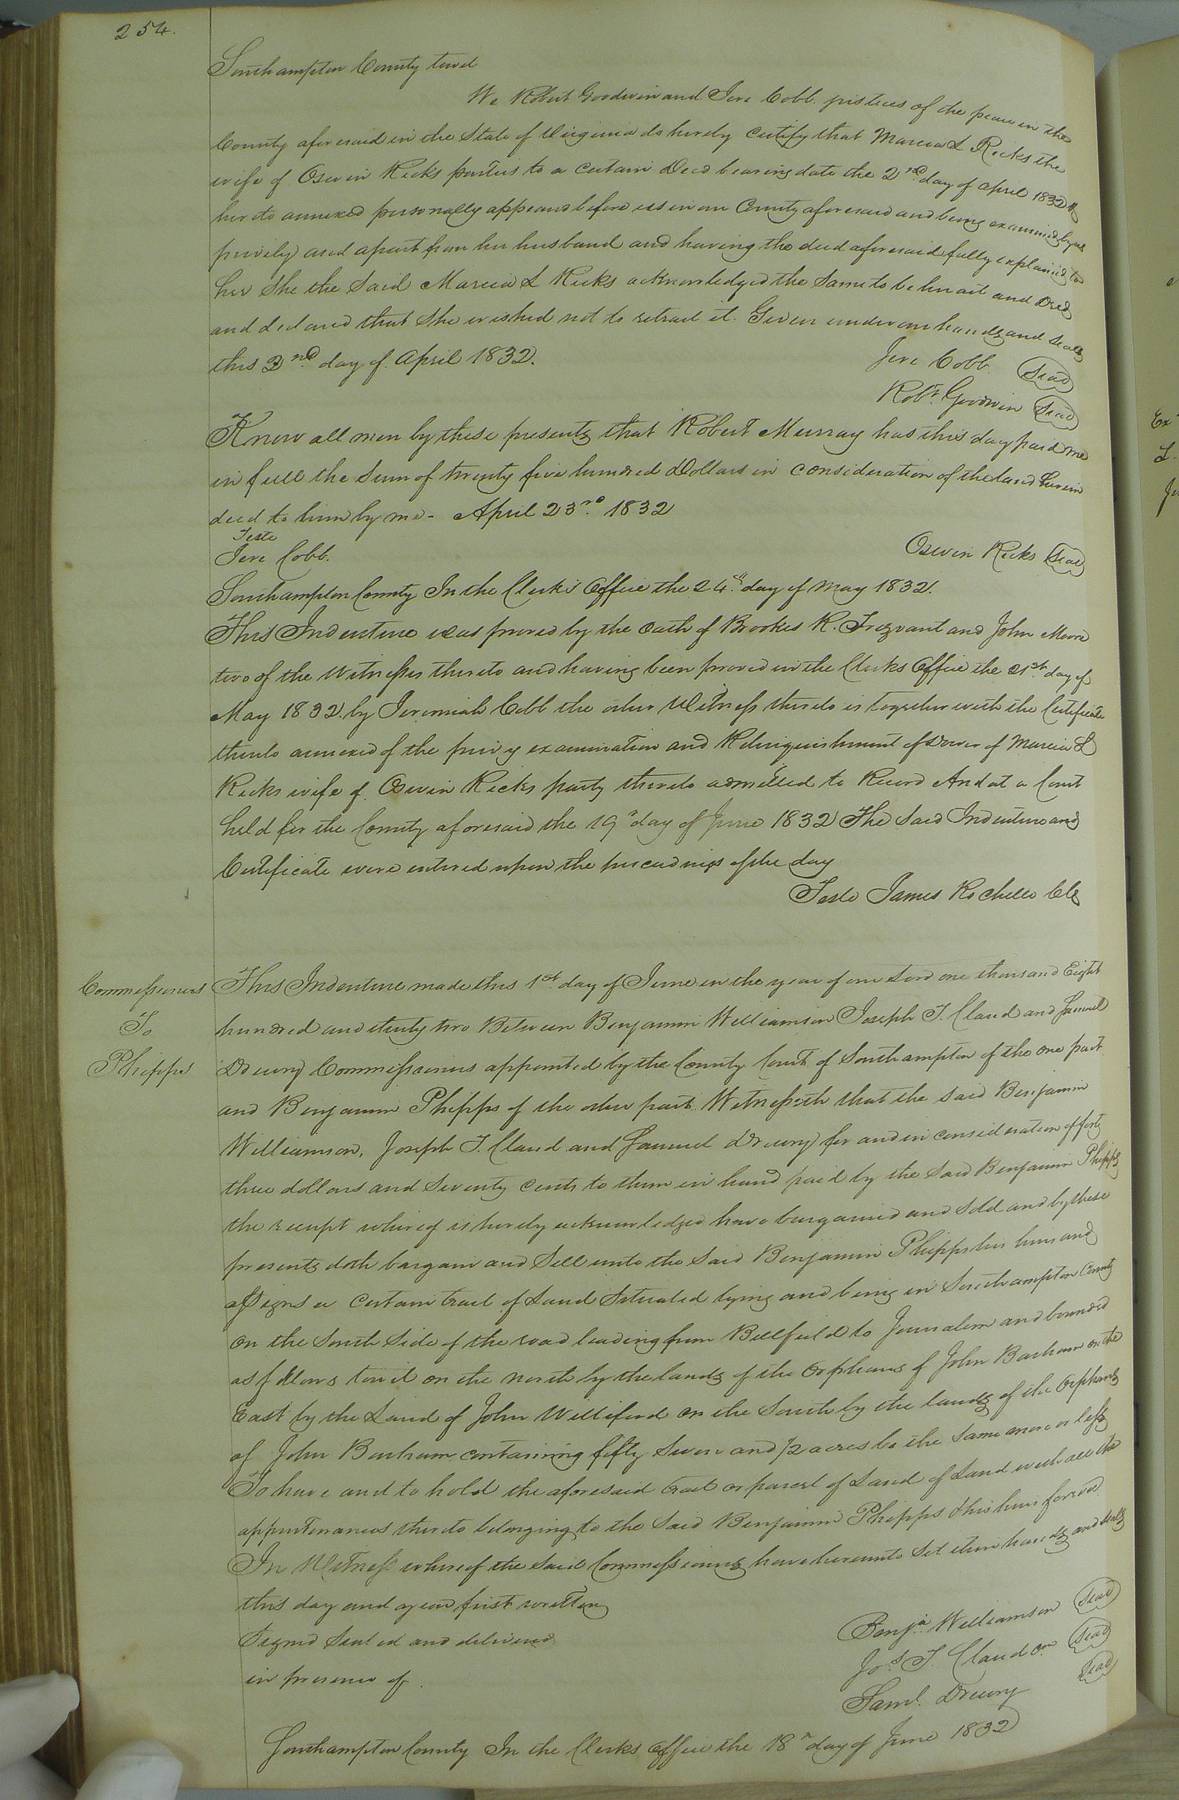 254.
Southampton County towit
We Robert Goodwin and Jere Cobb justices of the peace in the
County aforesaid in the State of Virginia do hereby certify that Marcia L Ricks the
wife of Oswin Ricks parties to a certain Deed bearing date the 2nd day of April 1832 &
hereto annexed personally appeared before us in our County aforesaid and being examined by us
privily and apart from her husband and having the deed aforesaid fully explained to
her She the Said Marcia L Ricks acknowledged the Same to be her act and Deed
and declared that She wished not to retract it. Given under our hands and seals
this 2nd day of April 1832.
Jere Cobb Seal
Robt. Goodwin Seal
Know all men by these presents that Robert Murray has this day paid me
in full the Sum of twenty five hundred Dollars in consideration of the land herein
deed to him by me - April 23rd 1832
Teste
Jere Cobb.
Oswin Ricks Seal
Southampton County In the Clerk's Office the 24th day of May 1832.
This Indenture was proved by the oath of Brookes R. Trezvant and John Moore
two of the Witnesses thereto and having been proved in the Clerks Office the 21st day of
May 1832 by Jeremiah Cobb the other Witness thereto is together with the Certificate
thereto annexed of the privy examination and Relinquishment of Dower of Marcia L
Ricks wife of Oswin Ricks party thereto admitted to Record And at a Court
held for the County aforesaid the 19th day of June 1832 The Said Indenture and
Certificate were entered upon the proceedings of the day
Teste James Rochelle Clk
Commissioners
To
Phipps
This Indenture made this 1st day of June in the year of our Lord one thousand Eight
hundred and thirty two Between Benjamin Williamson Joseph T. Claud and Samuel
Drewry Commissioners appointed by the County Court of Southampton of the one part
and Benjamin Phipps of the other part Witnesseth that the said Benjamin
Williamson, Joseph T. Claud and Samuel Drewry for and in consideration of forty
three dollars and Seventy cents to them in hand paid by the Said Benjamin Phipps
the receipt whereof is hereby acknowledged have bargained and Sold and by these
presents doth bargain and Sell unto the Said Benjamin Phipps his heirs and
assigns a certain tract of Land Situated lying and being in Southampton County
on the South Side of the road leading from Bellfield to Jerusalem and bounded
as follows towit on the north by the lands of the orphans of John Barham on the
East by the Land of John Williford on the South by the lands of the Orphans
of John Barham containing fifty Seven and 1/2 acres be the Same more or less
To have and to hold the aforesaid tract or parcel of Land of Land with all the
appurtenances thereto belonging to the Said Benjamin Phipps & his heirs forever
In Witness whereof the Said Commissioners have hereunto Set their hands and Seals
this day and year first written
Signed Sealed and delivered
in presence of
Benja Williamson Seal
Jos. T. Claud Seal
Saml. Drewry Seal
Southampton County In the Clerks office the 18th day of June 1832